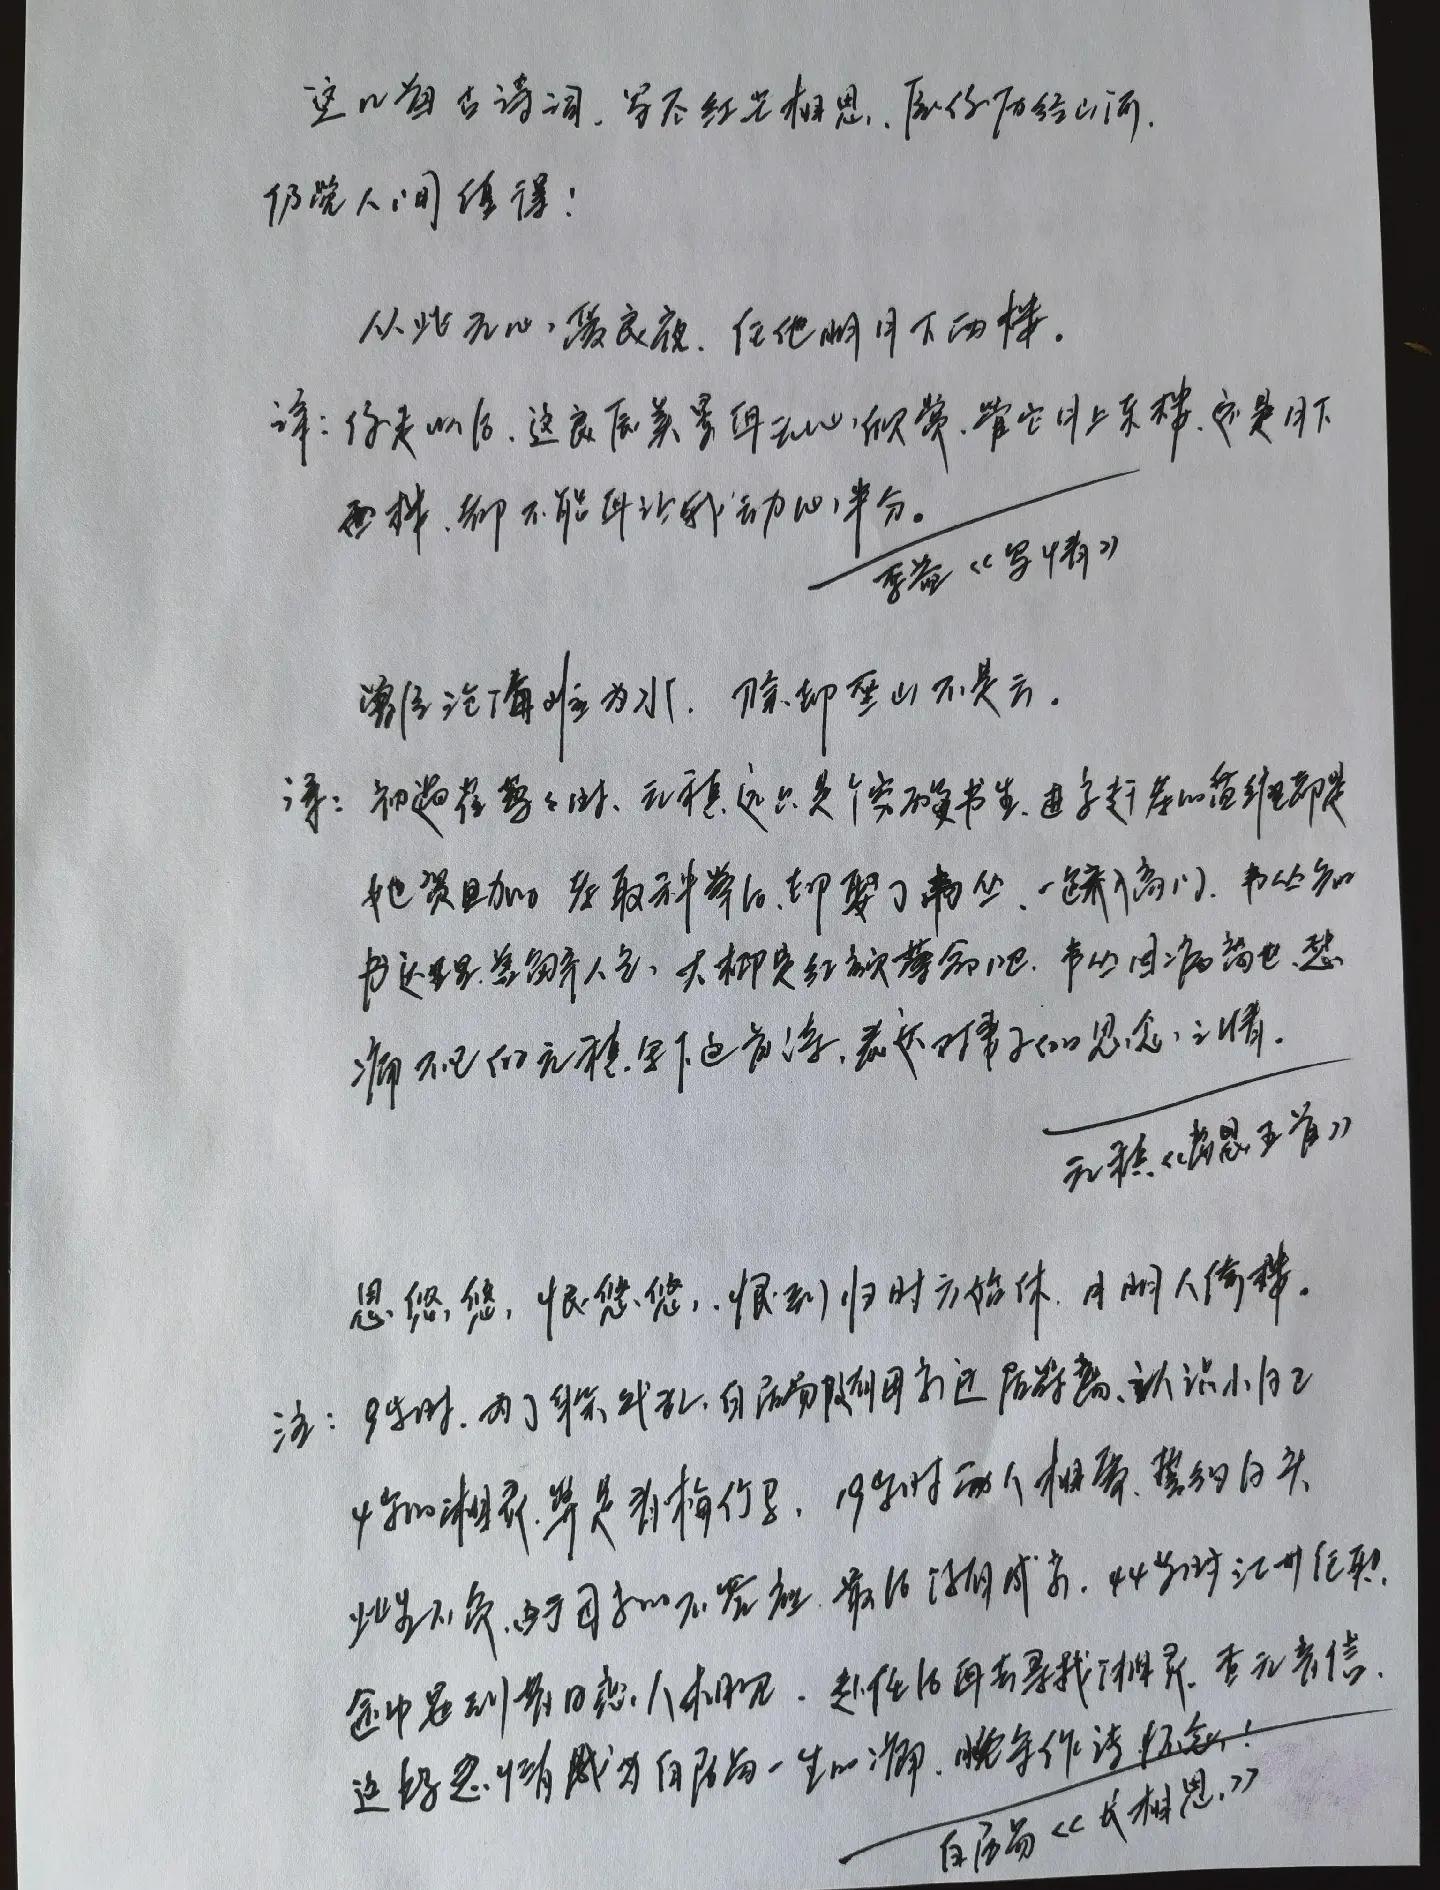 这几首古诗词、写尽红尘相思、愿你历经山河、
仍觉人间值得！
从此无心爱良夜、任他明月下西楼。
译：你走以后、这良辰美景再无心欣赏、管它月上东楼、还是月下
西楼、却不能再让我动心半分。
李益《写情》
曾经沧海难为水、除却巫山不是云。
译：初遇崔莺々时、元稹还只是个穷酸书生、进京赶考的盘缠都是
她资助的 考取科举后、却娶了韦丛、一跃高门、韦丛知
书达理、善解人意、大概是红颜薄命吧、韦丛因病离世、悲
痛不已的元稹、写下这首诗、表达对妻子的思念之情。
元稹《离思五首》
思悠悠，恨悠悠，恨到归时方始休、月明人倚楼。
注：9岁时、为了躲避战乱、白居易随母亲迁居符离、认识小自己
4岁的湘灵、算是青梅竹马，19岁时两人相爱、誓约白头
此生不负、由于母亲的不答应、最后没有成亲、44岁时江州任职、
途中遇到昔日恋人相见、赴任后再去寻找湘灵、杳无音信、
这段恋情成为白居易一生的痛、晚年作诗怀念！
白居易《长相思》